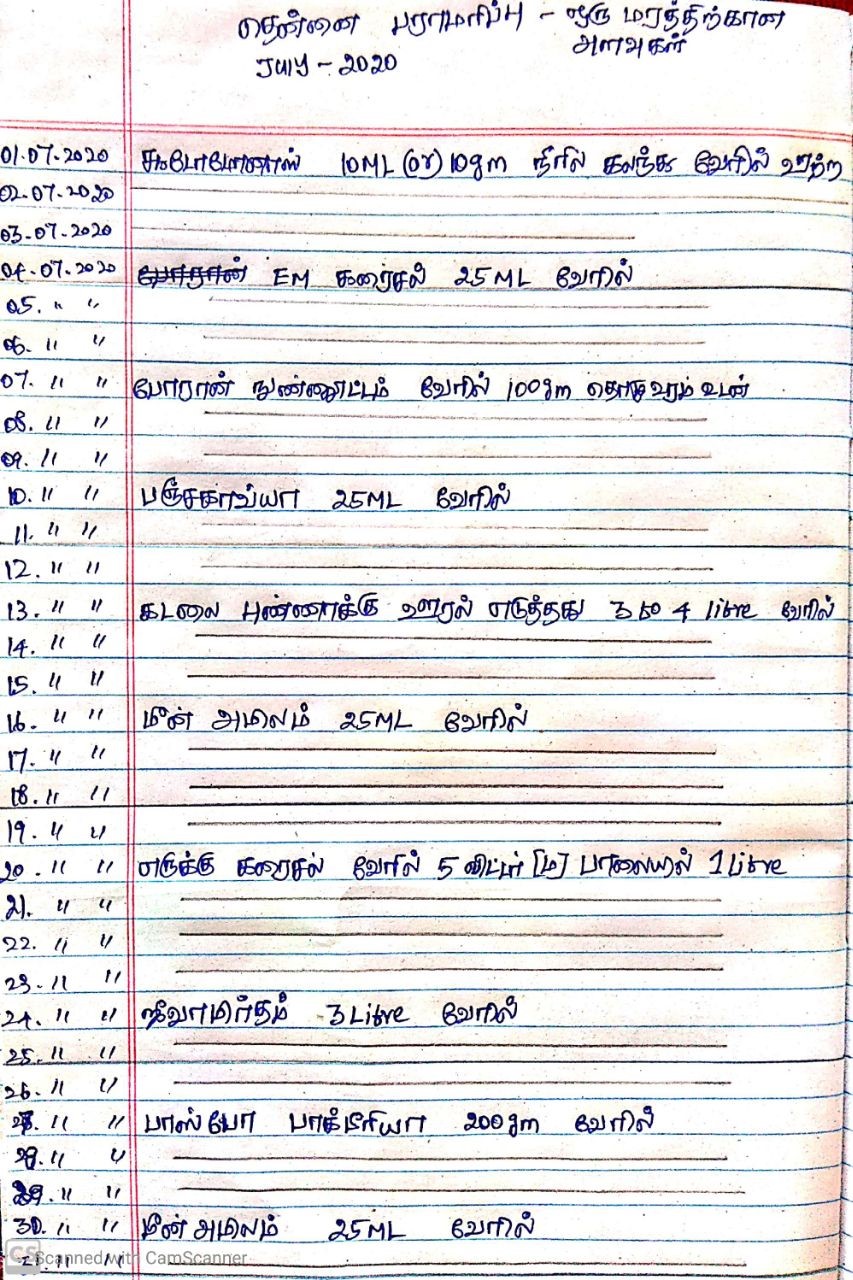 தென்னை பராமரிப்பு - ஒரு மரத்திற்கான
அளவுகள்
July - 2020
01.07.2020 சூடோமோனாஸ் 10ML (or) 10gm நீரில் கலந்து வேரில் ஊற்ற
02.07.2020
03.07.2020
04.07.2020 EM கரைசல் 25ML வேரில்
05. " "
06. " "
07. " " போரான் நுண்ணூட்டம் வேரில் 100gm தொழுஉரம் உடன்
08. " "
09. " "
10. " " பஞ்சகாவ்யா 25ML வேரில்
11. " "
12. " "
13. " " கடலை புண்ணாக்கு ஊறல் எடுத்தது 3 to 4 litre வேரில்
14. " "
15. " "
16. " " மீன் அமிலம் 25ML வேரில்
17. " "
18. " "
19. " "
20. " " எருக்கு கரைசல் வேரில் 5 லிட்டர் [ம] பாலையில் 1 Litre
21. " "
22. " "
23. " "
24. " " ஜீவாமிர்தம் 3 Litre வேரில்
25. " "
26. " "
27. " " பாஸ்போ பாக்டீரியா 200gm வேரில்
28. " "
29. " "
30. " " மீன் அமிலம் 25ML வேரில்
31. " "
CS Scanned with CamScanner